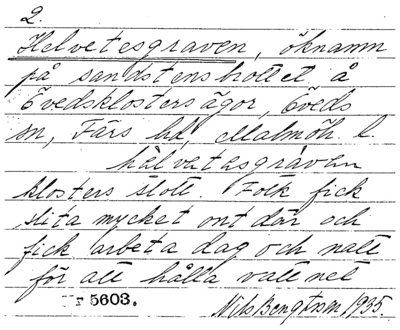 2.
Helvetesgraven, öknamn
på sandstensbrottet å
Övedsklostersägor, Öveds
sn, Färs hd, Malmöh. l
hälvetesgraven
klosters slott. Folk fick
slita mycket ont där och
fick arbeta dag och natt
för att hålla vattnet
Nr 5603. Nils Bengtsson 1935.